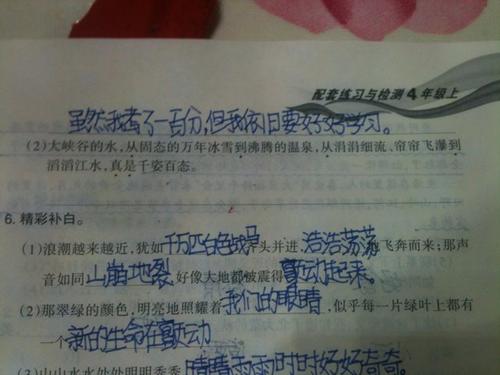 配套练习与检测4年级上
虽然我考了一百分,但我依旧要好好学习。
(2)大峡谷的水,从固态的万年冰雪到沸腾的温泉,从涓涓细流、帘帘飞瀑到
滔滔江水,真是千姿百态。
6. 精彩补白。
(1)浪潮越来越近,犹如千万匹白色战马齐头并进,浩浩荡荡地飞奔而来;那声
音如同山崩地裂,好像大地都被震得颤动起来。
(2)那翠绿的颜色,明亮地照耀着我们的眼睛,似乎每一片绿叶上都有
一个新的生命在颤动
(3)山山水水处处明明秀秀,晴晴雨雨时时好好奇奇。